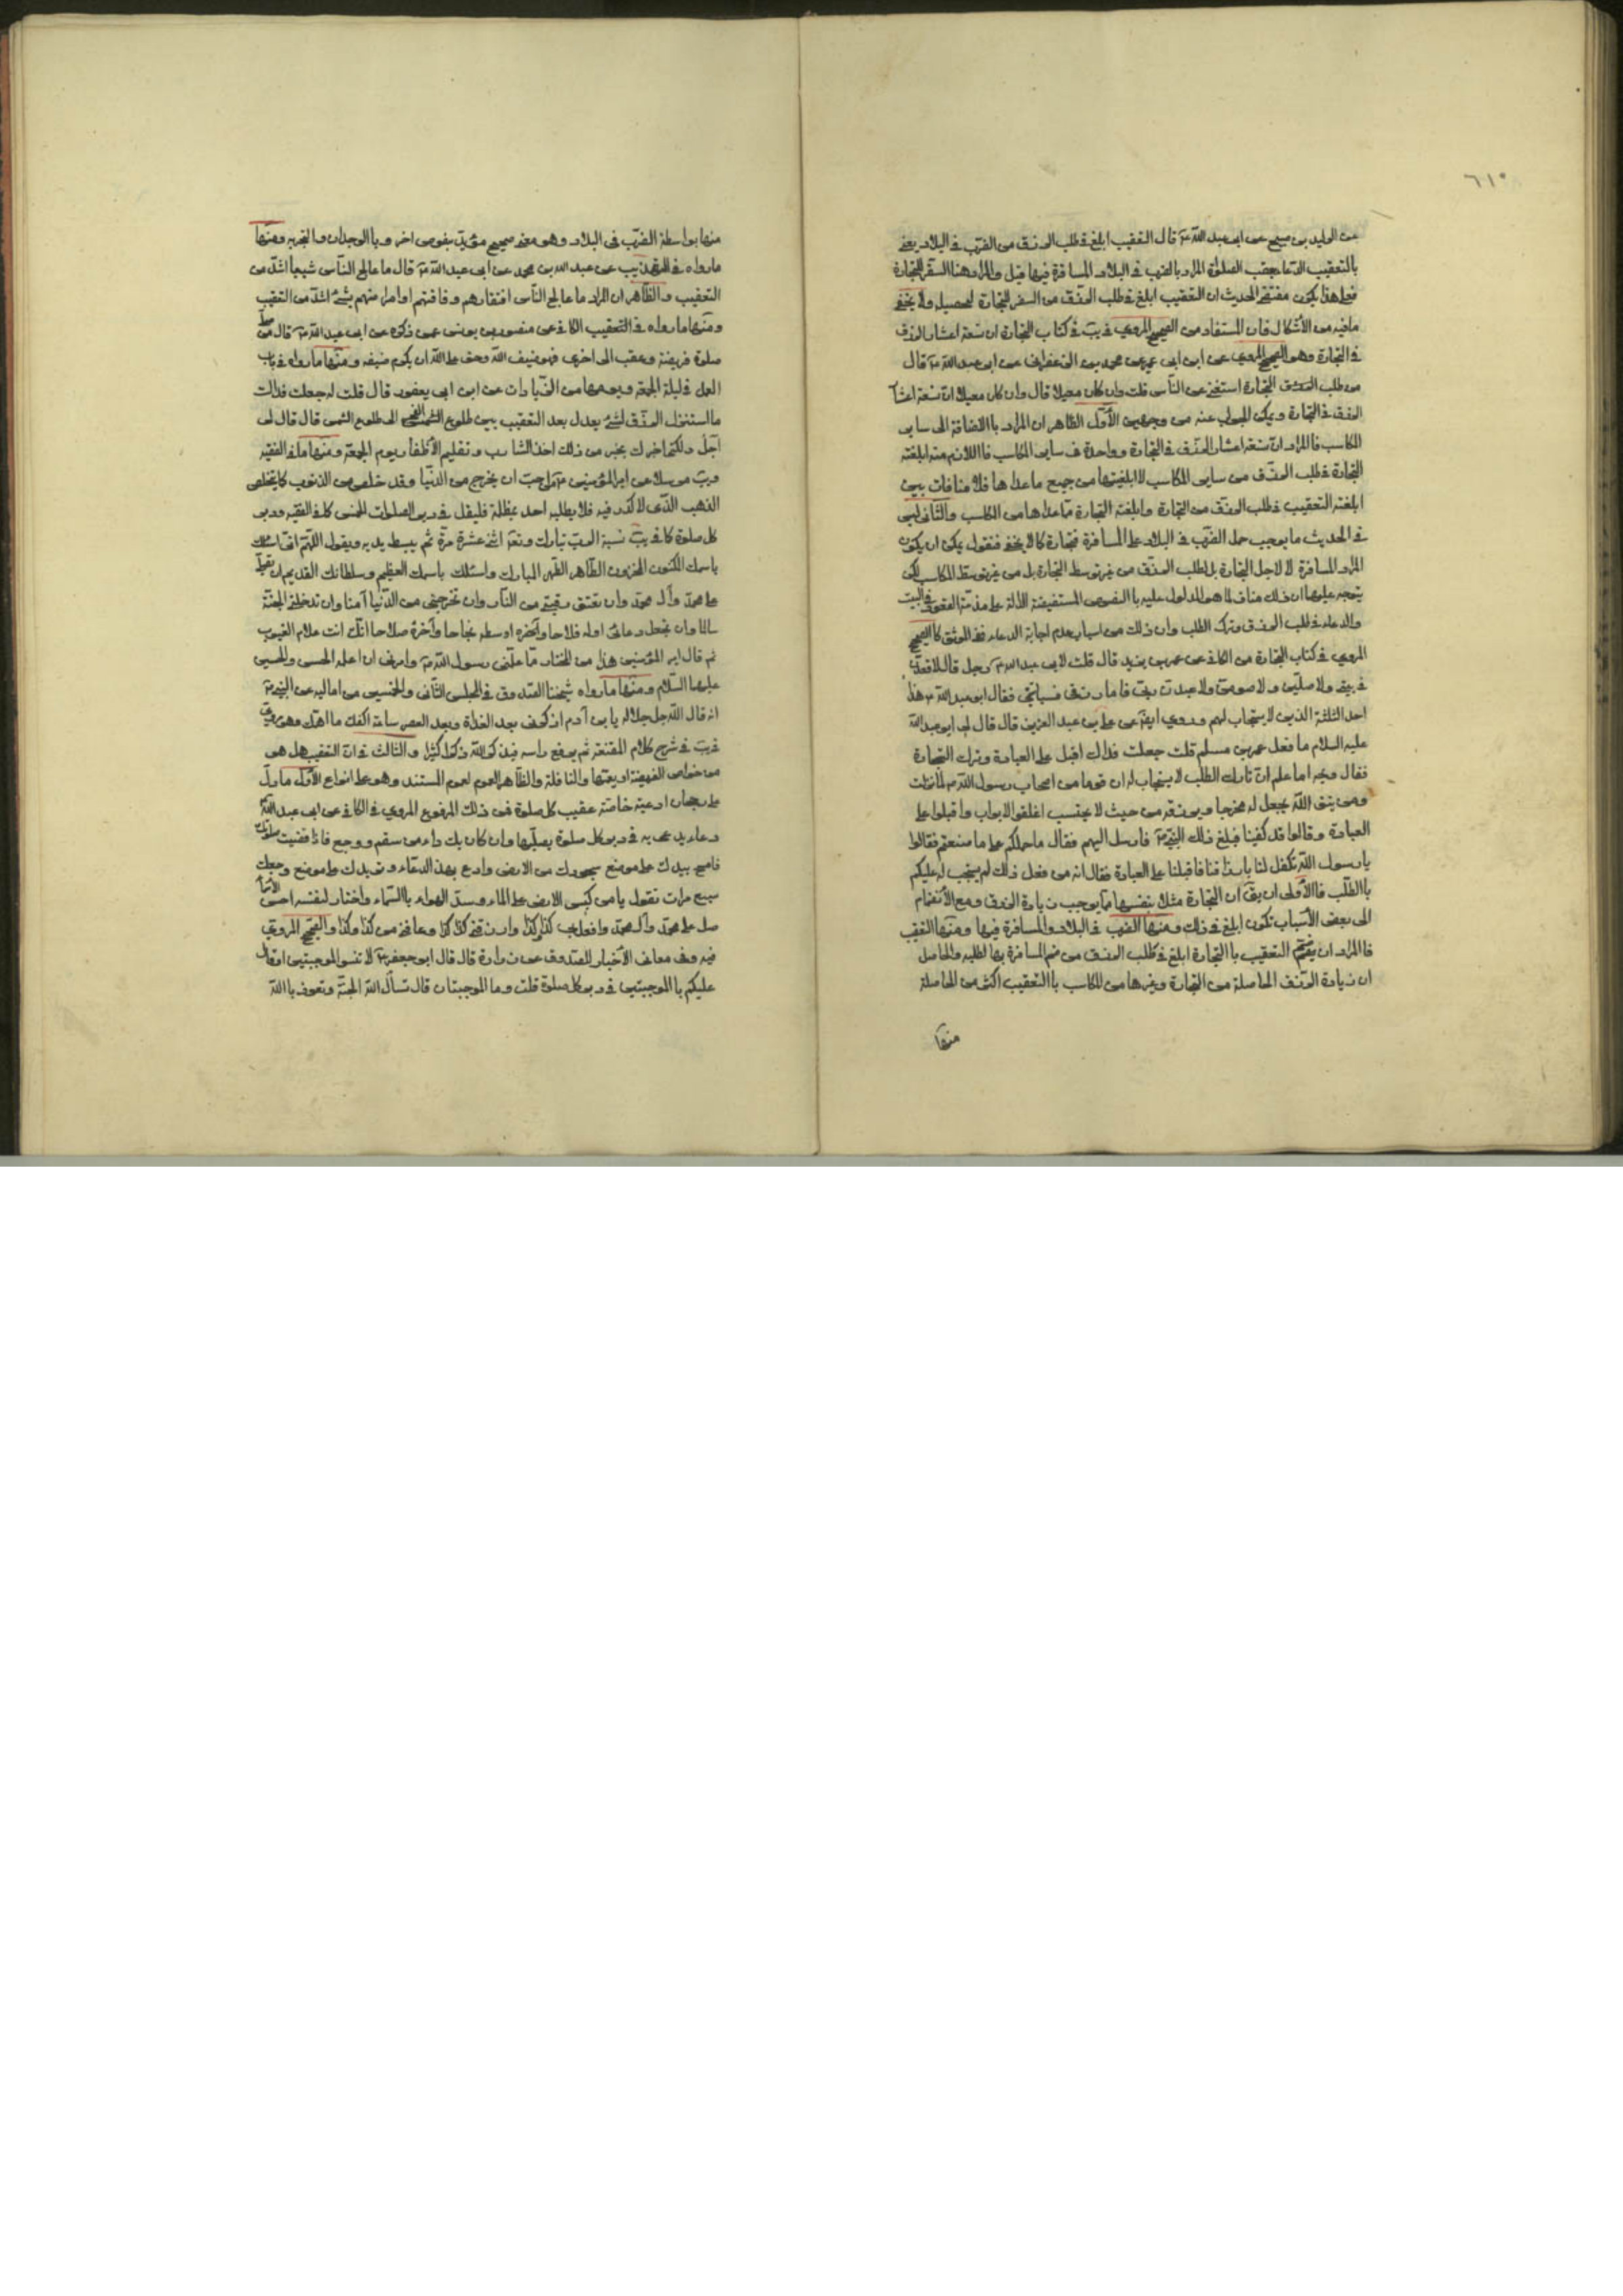 ٦١٠
عن الوليد بن صبيح عن ابى عبد الله ع قال التعقيب ابلغ فى طلب الرزق من الضرب فى البلاد يعنى
بالتعقيب الدعاء بعقب الصلوة المراد بالضرب فى البلاد المسافرة فيها قيل والمراد هنا السفر للتجارة
فعلى هذا يكون مفتضى الحديث ان التعقيب ابلغ فى طلب الرزق من السفر للتجارة لتحصيله ولا يخفى
مافيه من الأشكال فان المستفاد من الصحيح المروي فى يب فى كتاب التجارة ان تسعة اعشار الرزق
فى التجارة وهو الصحيح المروي عن ابن ابى عمير عن محمد بن الزعفرانى عن ابى عبد الله ع قال
من طلب التجارة استغنى عن الناس قلت وان كان معيلا قال وان كان معيلا ان تسعة اعشار
الرزق فى التجارة ويمكن الجواب عنه من وجهين الأول الظاهر ان المراد باالاضافة الى ساير
المكاسب فالمراد ان تسعة اعشار الرزق فى التجارة وواحدة فى ساير المكاسب فااللازم منه ابلغية
التجارة فى طلب الرزق من ساير المكاسب لا ابلغيتها من جميع ماعداها فلا منافات بين
ابلغية التعقيب فى طلب الرزق من التجارة وابلغية التجارة مما عداها من المكاسب والثانى ليس
فى الحديث ما يوجب حمل الضرب فى البلاد على المسافرة فتجارة كما لا يخفى فنقول يمكن ان يكون
المراد المسافرة لا لاجل التجارة بل لطلب الرزق من غير توسط التجارة بل من غير توسط المكاسب لكن
يتوجه عليهما ان ذلك مناف لما هو المدلول عليه باالنصوص المستفيضة الدالة على مذمة القعود فى البيت
والدعاء فى طلب الرزق وترك الطلب وان ذلك من اسباب عدم اجابة الدعاء ففى الموثق كاالصحيح
المروي فى كتاب التجارة من الكافى عن عمر بن يزيد قال قلت لابى عبد الله ع رجل قال لاقعدن
فى بيتى ولاصلين ولاصومن ولاعبدن ربى فاما رزقى فسياتينى فقال ابو عبد الله ع هذا
احد الثلثة الذين لا يستجاب لهم وروي ايضا عن على بن عبد العزيز قال قال لى ابو عبد الله
عليه السلام ما فعل عمر بن مسلم قلت جعلت فداك اقبل على العبادة وترك التجارة
فقال ويحه اما علم ان تارك الطلب لا يستجاب له ان قوما من اصحاب رسول الله ص لما نزلت
ومن يتق الله يجعل له مخرجا ويرزقه من حيث لا يحتسب اغلقوا الابواب واقبلوا على
العبادة وقالوا قد كفينا فبلغ ذلك النبى ص فارسل اليهم فقال ما حملكم على ما صنعتم فقالوا
يا رسول الله تكفل لنا بارزاقنا فاقبلنا على العبادة فقال انه من فعل ذلك لم يستجب له عليكم
باالطلب فاالأولى ان يق ان التجارة مثلا بنفسها مما يوجب زيادة الرزق ومع الأنضمام
الى بعض الأسباب تكون ابلغ فى ذلك ومنها الضرب فى البلاد والمسافرة فيها ومنها التعقيب
فاالمراد ان يضم التعقيب باالتجارة ابلغ فى طلب الرزق من ضم المسافرة بها لطلبه والحاصل
ان زيادة الرزق الحاصلة من التجارة وغيرها من المكاسب باالتعقيب اكثر من الحاصلة
منها
منها بواسطة الضرب فى البلاد وهو معنى صحيح مؤيد بنصوص اخر وباالوجدان والتجربة ومنها
مارواه فى التهذيب عن عبد الله بن محمد عن ابى عبد الله ع قال ما عالج الناس شيئا اشد من
التعقيب والظاهر ان المراد ما عالج الناس افتقارهم وفاقتهم اوامراضهم بشئ اشد من التعقيب
ومنها مارواه فى التعقيب الكافى عن منصور بن يونس عمن ذكره عن ابى عبد الله ع قال من صلى
صلوة فريضة وعقب الى اخرى فهو ضيف الله وحق على الله ان يكرم ضيفه ومنها مارواه فى باب
العمل فى ليلة الجمعة ويومها من الزيادات عن ابن ابى يعفور قال قلت له جعلت فداك
ما استنزل الرزق لشئ يعدل بعد التعقيب بين طلوع الفجر الى طلوع الشمس قال قال لى
اجل ولكنى اخبرك بخير من ذلك اخذ الشارب وتقليم الأظفار يوم الجمعة ومنها ما فى الفقيه
ويب مرسلا عن امير المؤمنين ع من احب ان يخرج من الدنيا وقد خلص من الذنوب كما يتخلص
الذهب الذى لا كدر فيه فلا يطلبه احد بمظلمة فليقل فى دبر الصلوات الخمس كما فى الفقيه ودبر
كل صلوة كما فى يب نسبة الرب تبارك وتعالى اثنى عشرة مرة ثم يبسط يديه ويقول اللهم انى اسئلك
باسمك المكنون المخزون الطاهر الطهر المبارك واسئلك باسمك العظيم وسلطانك القديم ان تصلى
على محمد وآل محمد وان تعتق رقبتى من النار وان تخرجنى من الدنيا آمنا وان تدخلنى الجنة
سالما وان تجعل دعائى اوله فلاحا واوسطه نجاحا وآخره صلاحا انك انت علام الغيوب
ثم قال امير المؤمنين هذا من المختار مما علمنى رسول الله ص وامرنى ان اعلمه الحسن والحسين
عليهما السلام ومنها مارواه شيخنا الصدوق فى المجلس الثانى والخمسين من اماليه عن النبى ص
انه قال الله جل جلاله يا بن آدم اذكرنى بعد الغداة وبعد العصر ساعة اكفك ما اهمك وهو مروي
فى يب فى شرح كلام المقنعة ثم يرفع راسه فيذكر الله ذكرا كثيرا والثالث فى ان التعقيب هل هو
من خواص الفريضة او يعمها والنافلة والظاهر العموم لعموم المستند وهو على انواع الأول ما دل
على رجحان ادعية خاصة عقيب كل صلوة فمن ذلك المرفوع المروي فى الكافى عن ابى عبد الله
دعاء يدعى به فى دبر كل صلوة يصليها وان كان بك داء من سقم ووجع فاذا قضيت صلوتك
فامسح بيدك على موضع سجودك من الارض وادع بهذ الدعاء وتمر يدك على موضع وجعك
سبع مرات تقول يا من كبس الارض على الماء وسد الهواء باالسماء واختار لنفسه احسن الأسماء
صل على محمد وآل محمد وافعل بى كذا وكذا وارزقنى كذا وكذا وعافنى من كذا وكذا والصحيح المروي
فيه وفى معانى الأخبار للصدوق عن زرارة قال قال ابى جعفر ع لا تنسوا الموجبتين او قال
عليكم باالموجبتين فى دبر كل صلوة قلت وما الموجبتان قال تسأل الله الجنة وتعوذ باالله